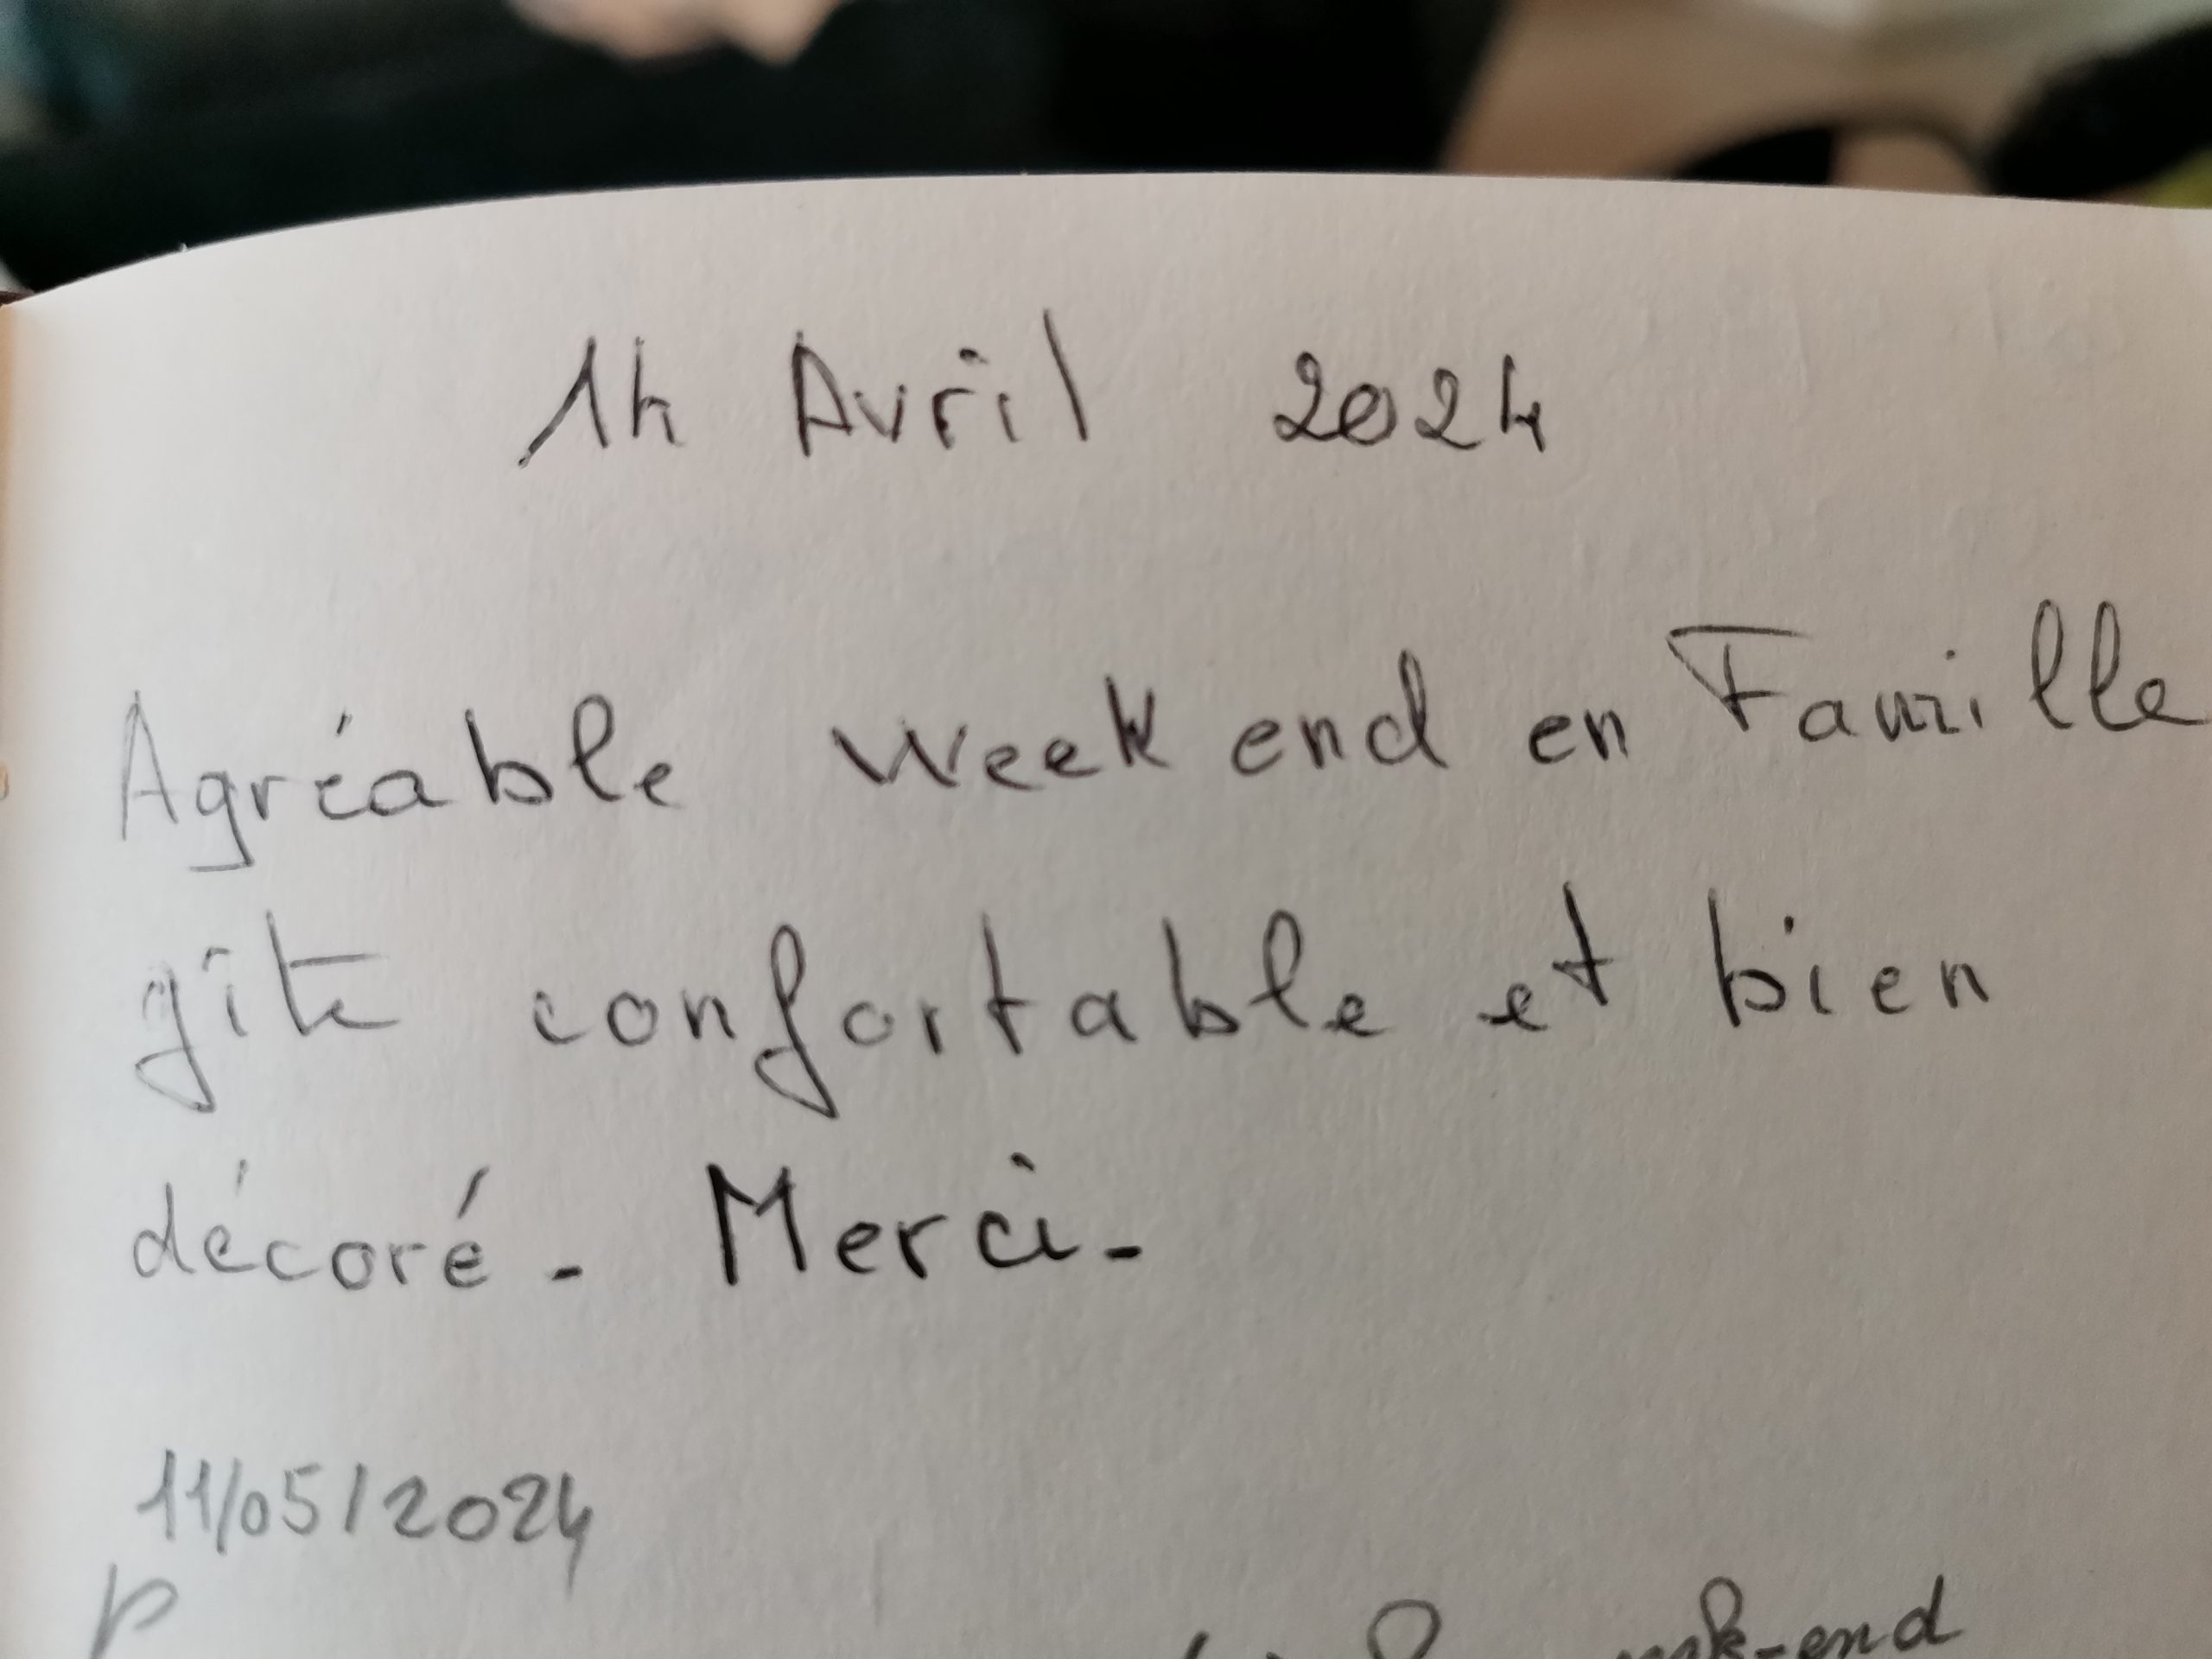 14 Avril 2024
Agréable week end en Famille
gîte confortable et bien
décoré - Merci -
11/05/2024
week-end